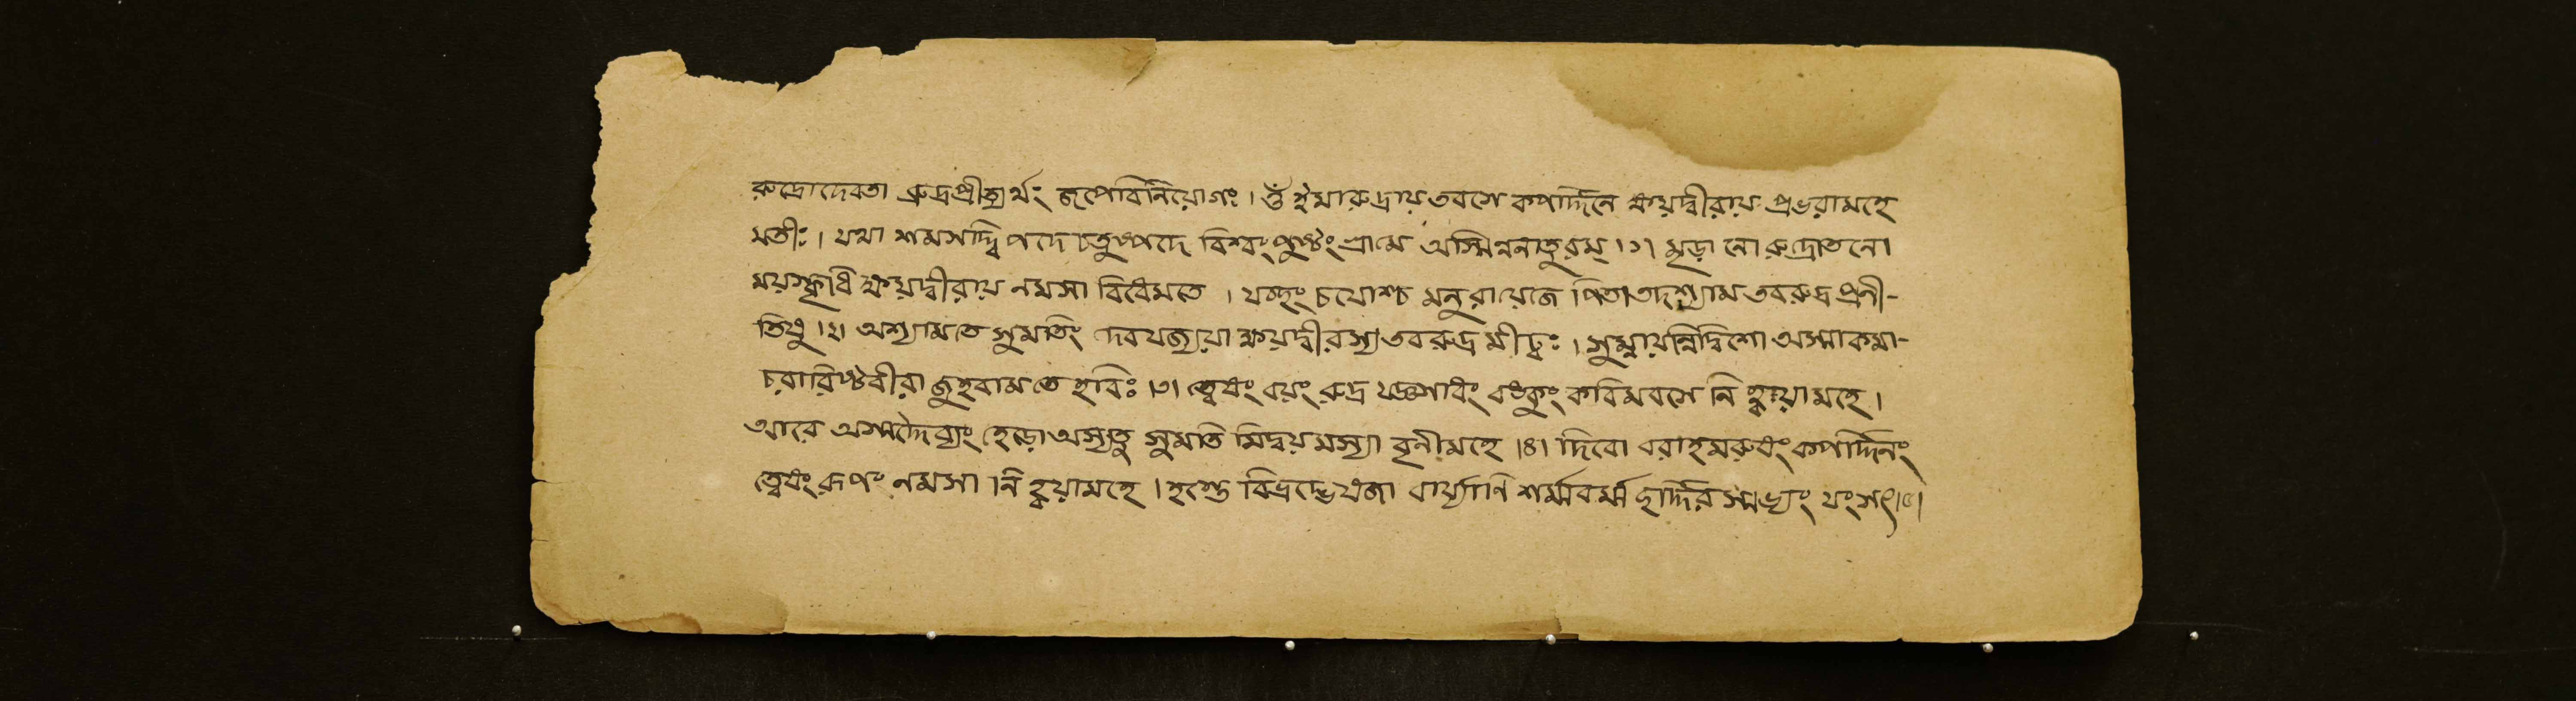 রুদ্রোদেবতা শ্রুদ্রপ্রীত্যর্থং জপেবিনিয়োগঃ। ওঁ ইমারুদ্রায় তবসে কপর্দ্দিনে ক্ষয়দ্বীরায় প্রভরামহে
মতীঃ। যথা শমসদ্দ্বিপদে চতুষ্পদে বিশ্বং পুষ্টং গ্রামে অস্মিন্ননাতুরম্।১। মৃড়া নো রুদ্রোতনো
ময়স্কৃধি ক্ষয়দ্বীরায় নমসা বিধেমতে। যচ্ছং চযোশ্চ মনুরায়েজে পিতাতদশ্যাম তবরুদ্র প্রণী-
তিষু।২। অশ্যামতে সুমতিং দেবযজ্যয়া ক্ষয়দ্বীরস্য তবরুদ্র মীঢ্বঃ। সুম্নায়ন্নিদ্বিশো অস্মাকমা-
চরারিষ্টবীরা জুহবামতে হবিঃ।৩। ত্বেষং বয়ং রুদ্র যজ্ঞসাধং বঙ্কুং কবিমবসে নি হ্বয়ামহে।
আরে অস্মদ্দৈব্যং হেড়ো অস্যতু সুমতি মিদ্বয়মস্যা বৃনীমহে।৪। দিবো বরাহমরুষং কপর্দ্দিনং
ত্বেষং রূপং নমসা নি হ্বয়ামহে। হস্তে বিভ্রদ্ভেষজা বার্য্যাণি শর্ম্মবর্ম্ম ছর্দ্দিরস্মভ্যং যংসৎ।৫।